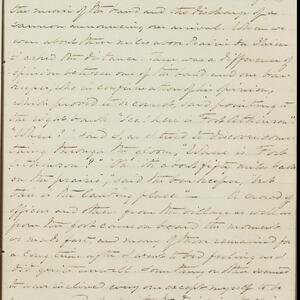 the music of the band and the discharge of a
cannon announcing our arrival. When we
were about three miles above Prairie du Chien
I asked the distance; and was a difference of
opinion between one of the and our bar
keeper, who in confirmation of his opinion,
which proved to be correct, said pointing to
the right bank "See! here is Fort Atkinson"
"Where!" said I, as I tried to discover some-
thing through the gloom, "where is Fort
Atkinson?" "Oh! it's about fifty miles back
on the prairie," said the bar keeper, "but
this is the landing place" — A crowd of
officers and others from the village as well as
from the fort came on board the moment
we made fast and many of them remained for
a long time after I went to bed feeling
not well. Something or other seemed
to have inclined every one except myself to be